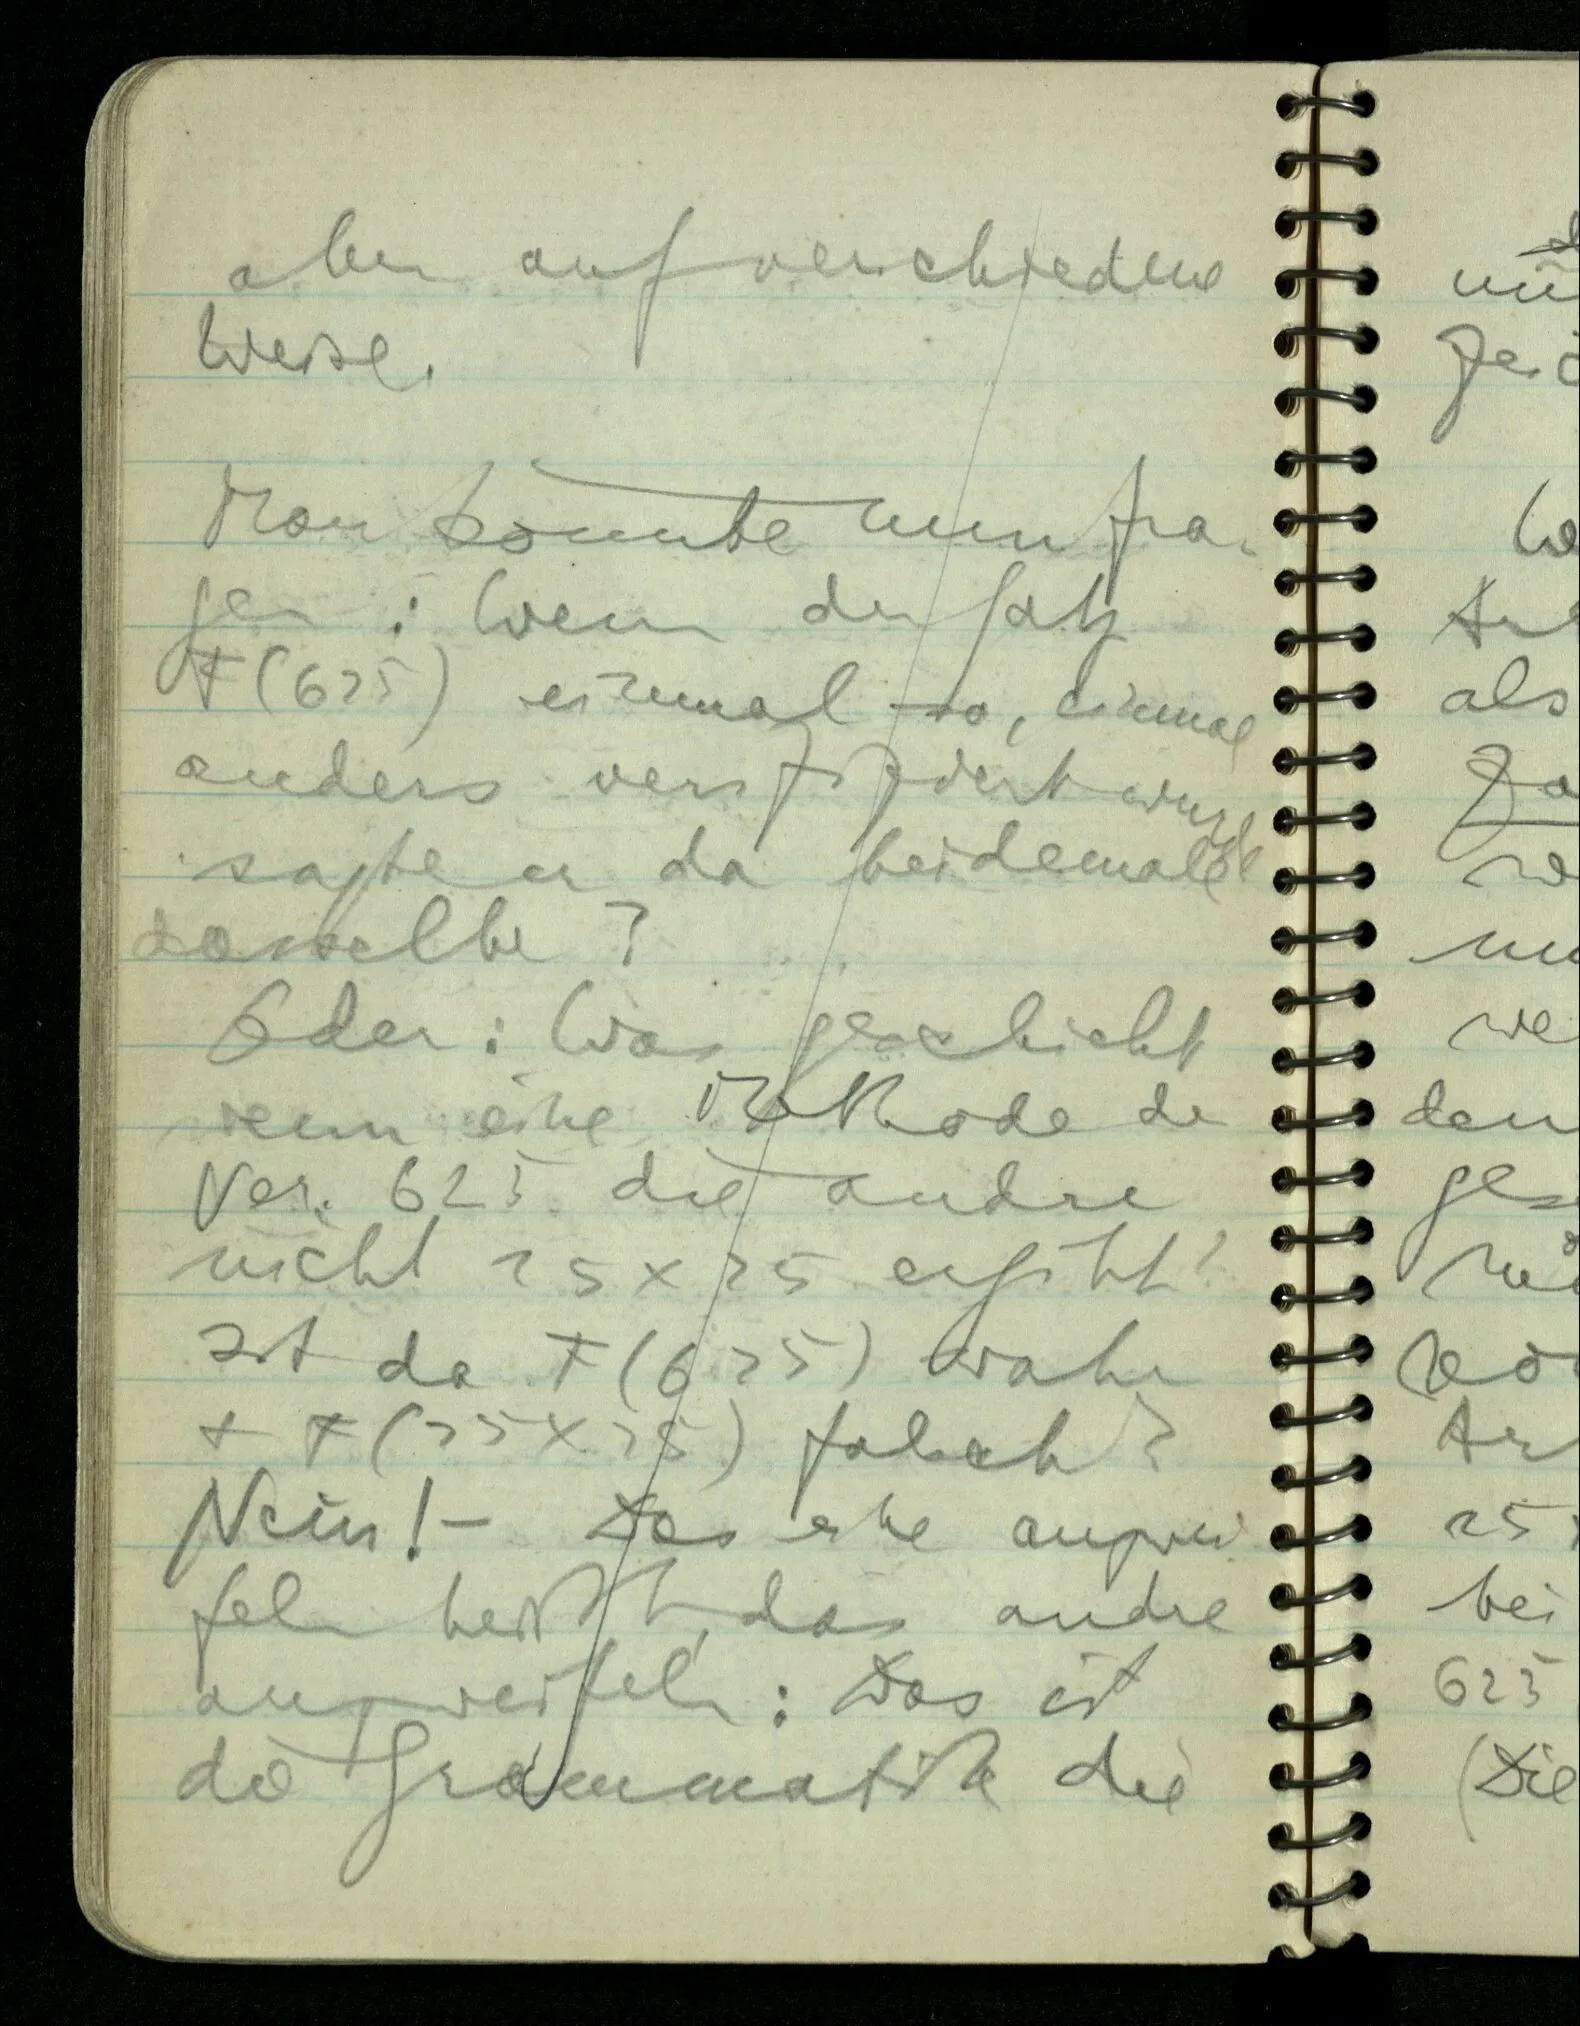 aber auf verschiedene
Weise.
Man könnte nun fra-
gen: Wenn der Satz
F(625) einmal so, einmal
anders verifiziert wurde
sagte er da beidemale
dasselbe?
Oder: Was geschieht
wenn eine Methode der
Ver. 625 die andre
nicht 25×25 ergibt?
Ist da F(625) wahr
+ F(25×25) falsch?
Nein! – Das eine anzwei-
feln heißt, das andre
anzweifeln: Das ist
die Grammatik die
als
den
25
bei
625
(Die